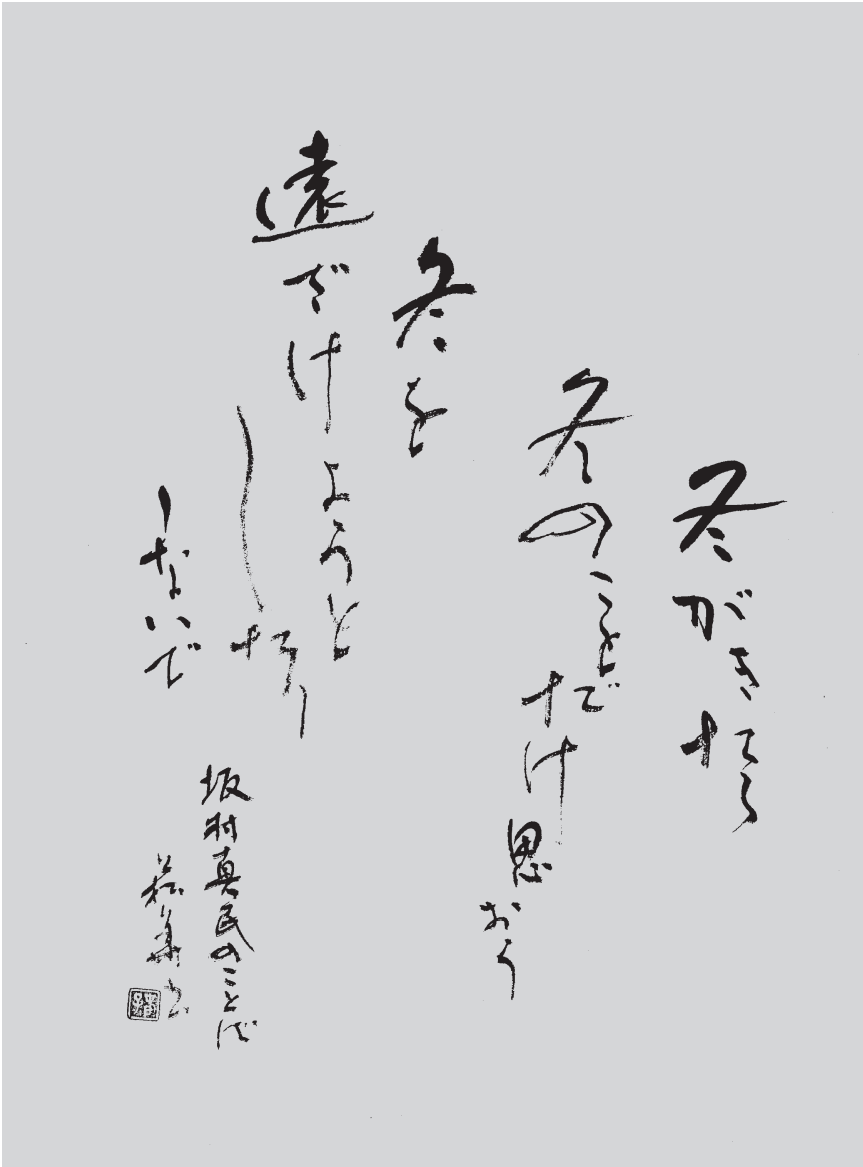 冬がきたら
冬のことだけ思おう
冬を
遠ざけようと
したり
しないで
坂村真民のことば